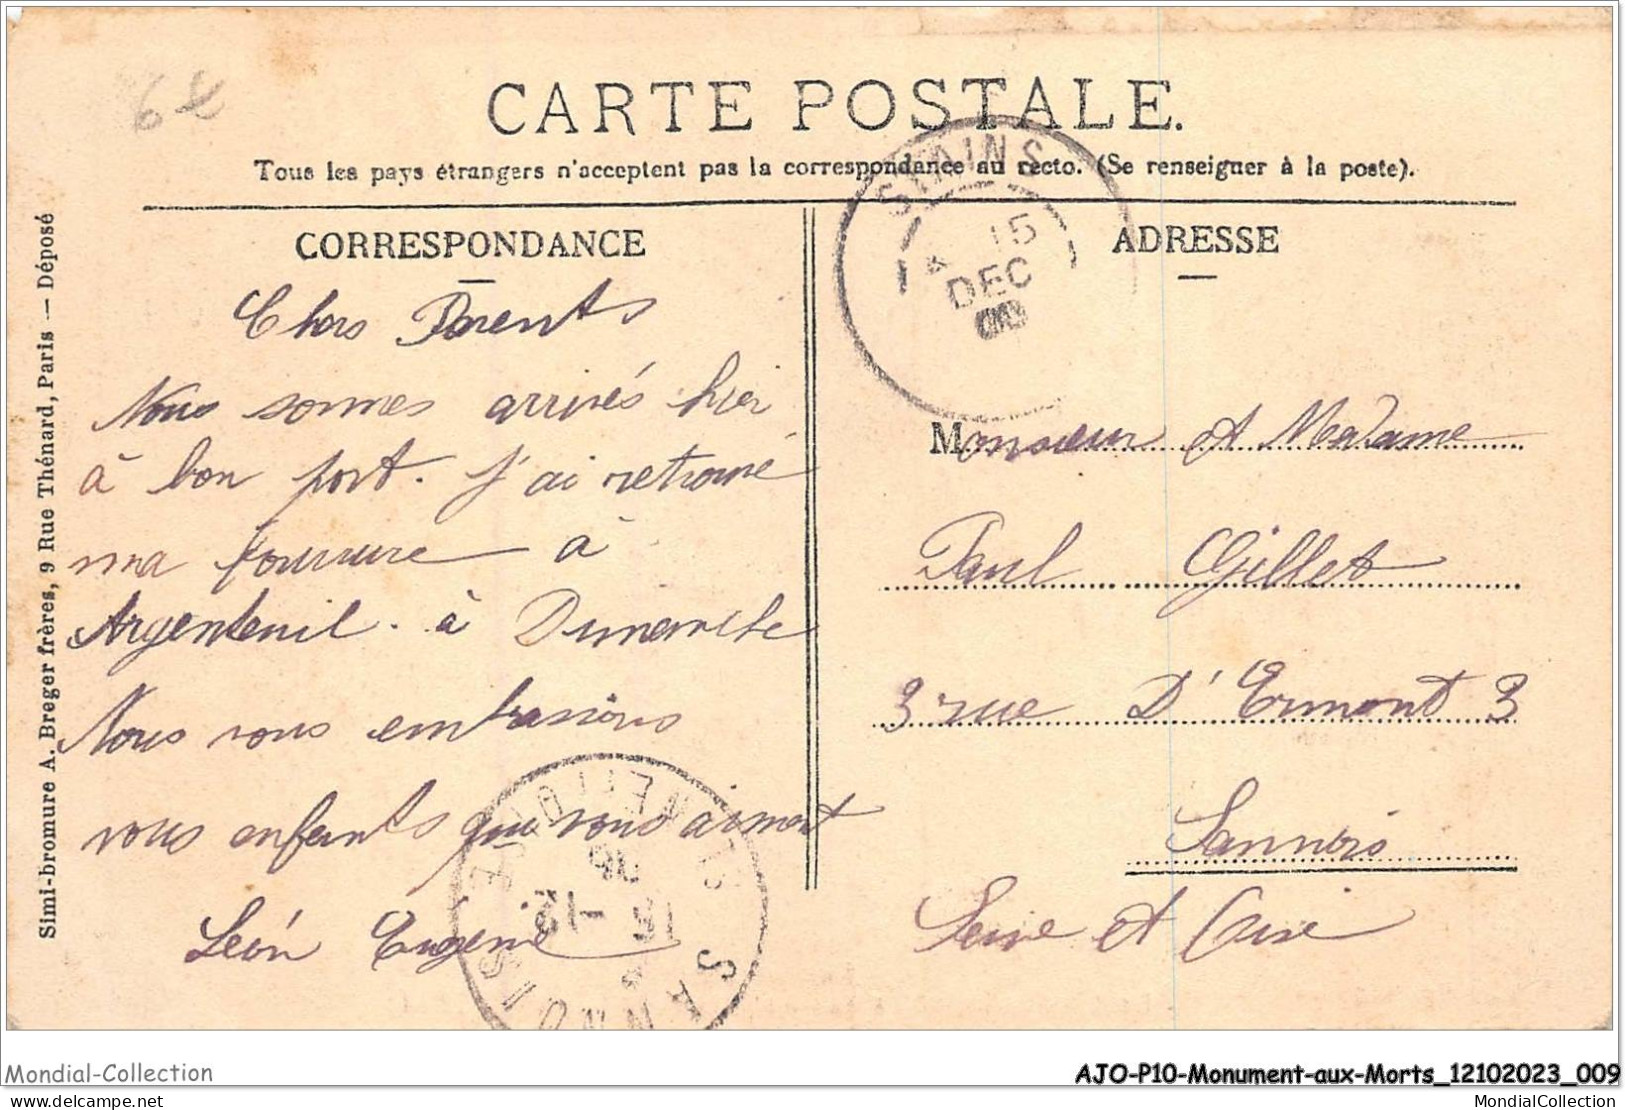 6€
CARTE POSTALE.
Tous les pays étrangers n'acceptent pas la correspondance au recto. (Se renseigner à la poste).
CORRESPONDANCE
Chers Parents
Nous sommes arrivés hier
à bon port. J'ai retrouvé
ma fourrure à
Argenteuil. à Dimanche
Nous vous embrassons
vous enfants qui vous aiment
Léon Eugénie
ADRESSE
Monsieur et Madame
Paul Gillet
3 rue D'Ermont 3
Sannois
Seine et Oise
STAINS
15
DEC
SANNOIS
SEINE-ET-OISE
15 -12
06
Simi-bromure A. Breger frères, 9 Rue Thénard, Paris — Déposé
Mondial-Collection
AJO-P10-Monument-aux-Morts_12102023_009
delcampe.net
MondialCollection